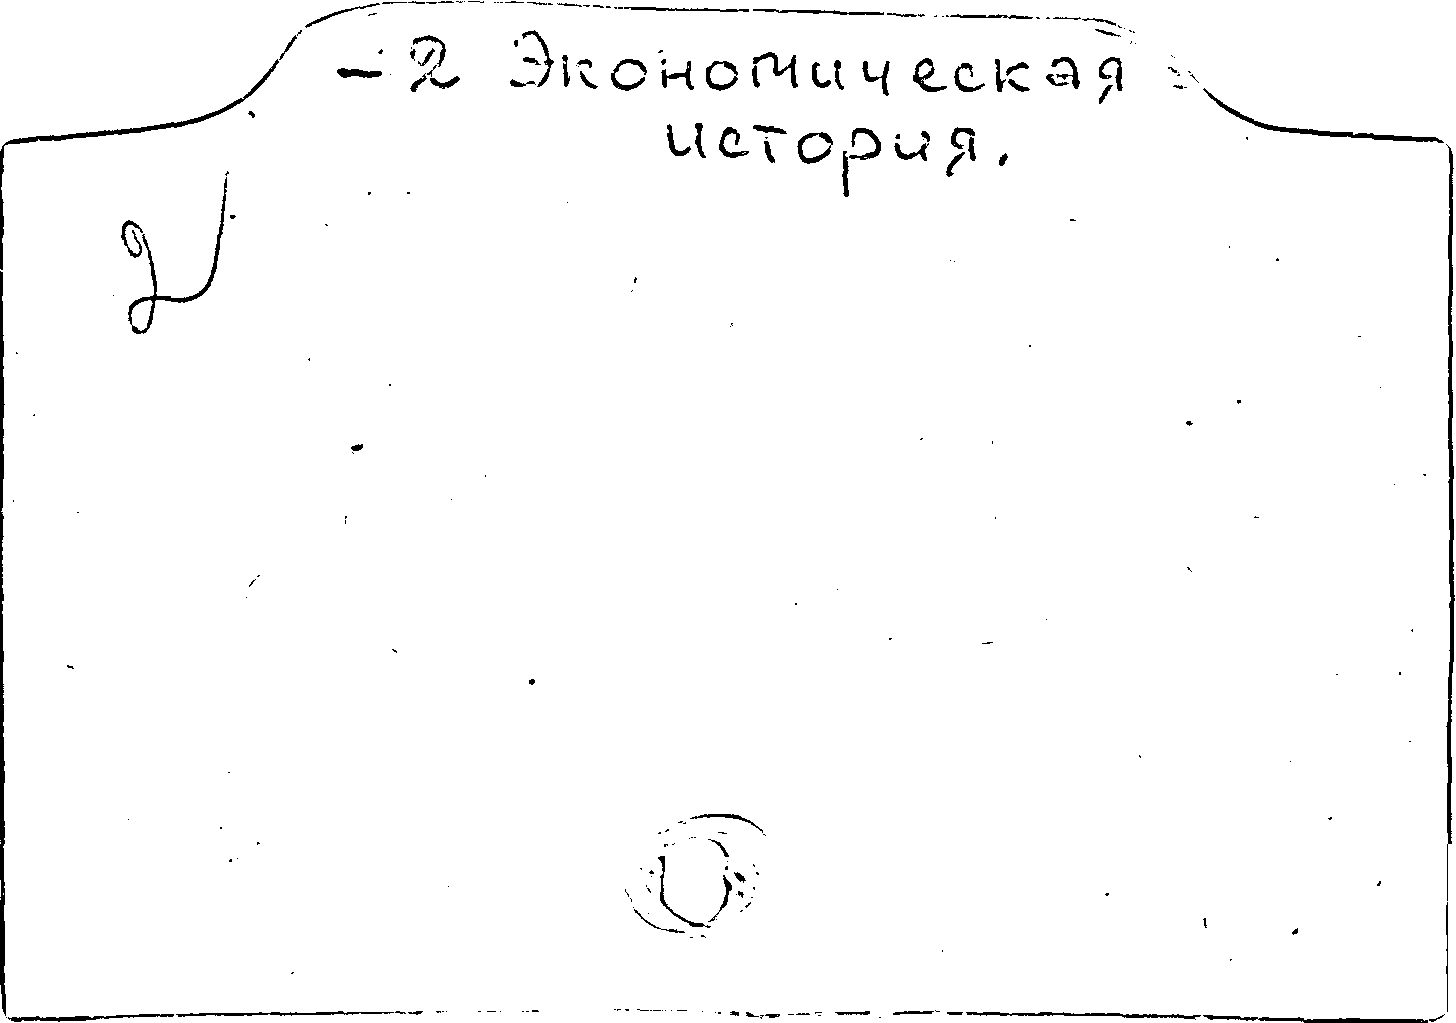 -2 Экономическая
история.
2